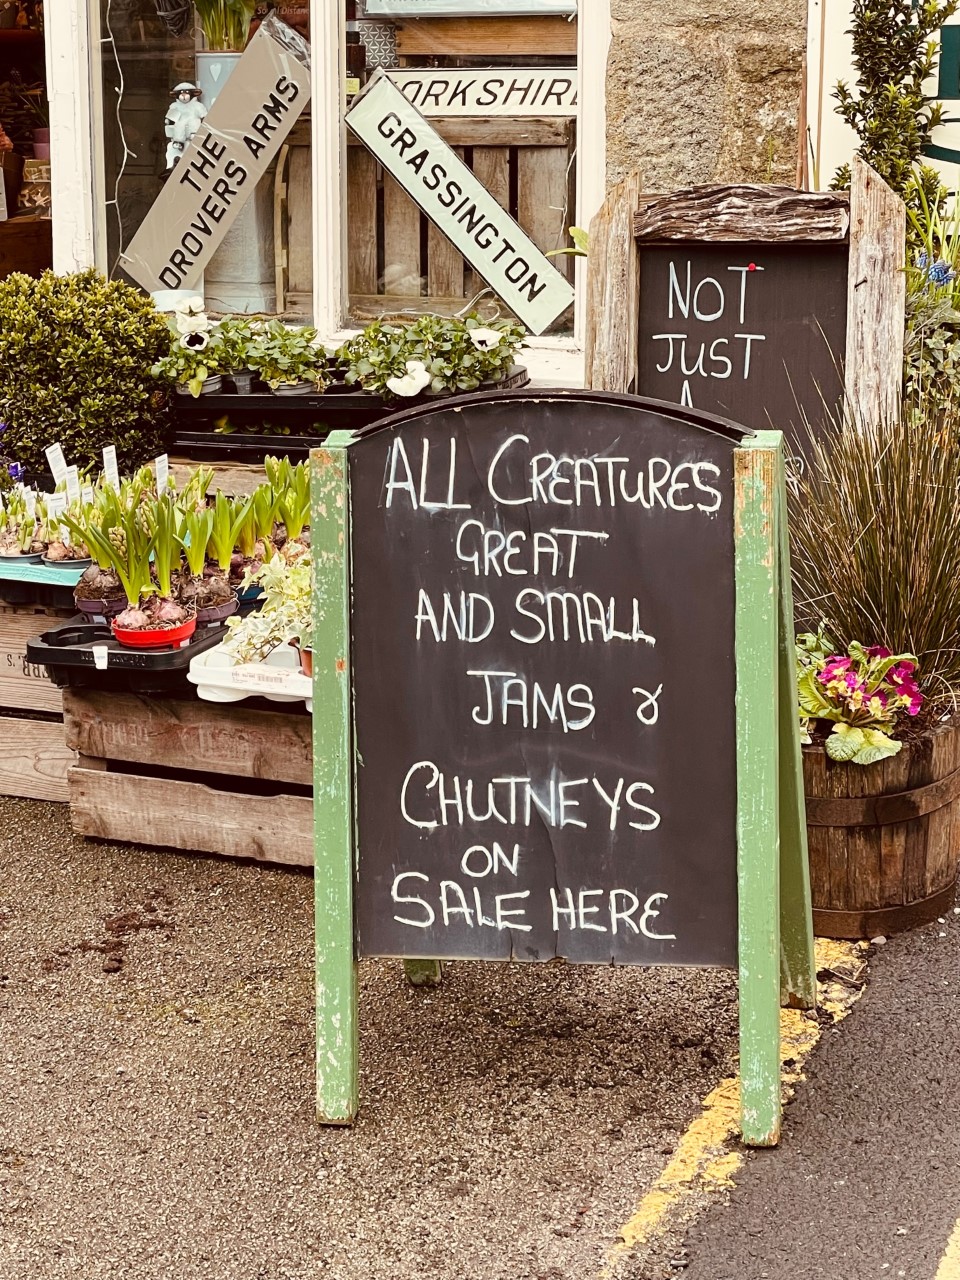 THE
DROVERS ARMS
YORKSHIRE
GRASSINGTON
NOT
JUST
A
ALL CREATURES
GREAT
AND SMALL
JAMS &
CHUTNEYS
ON
SALE HERE